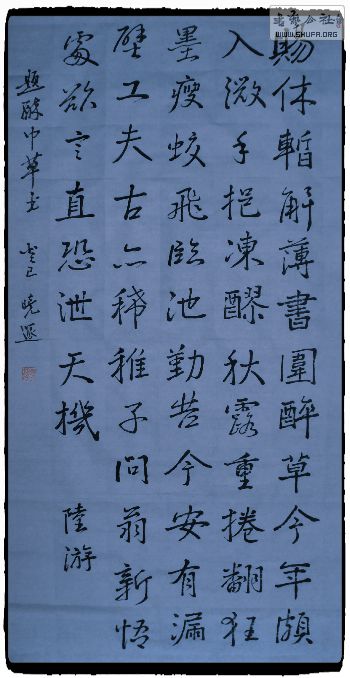 賜休暫解薄書圍醉草今年頗
入微手挹凍醪秋露重捲翻狂
墨瘦蛟飛臨池勤苦今安有漏
壁工夫古亦稀稚子問翁新悟
處欲言直恐泄天機 陸游
題醉中草书 癸巳 曉
书艺公社
WWW.SHUFA.ORG